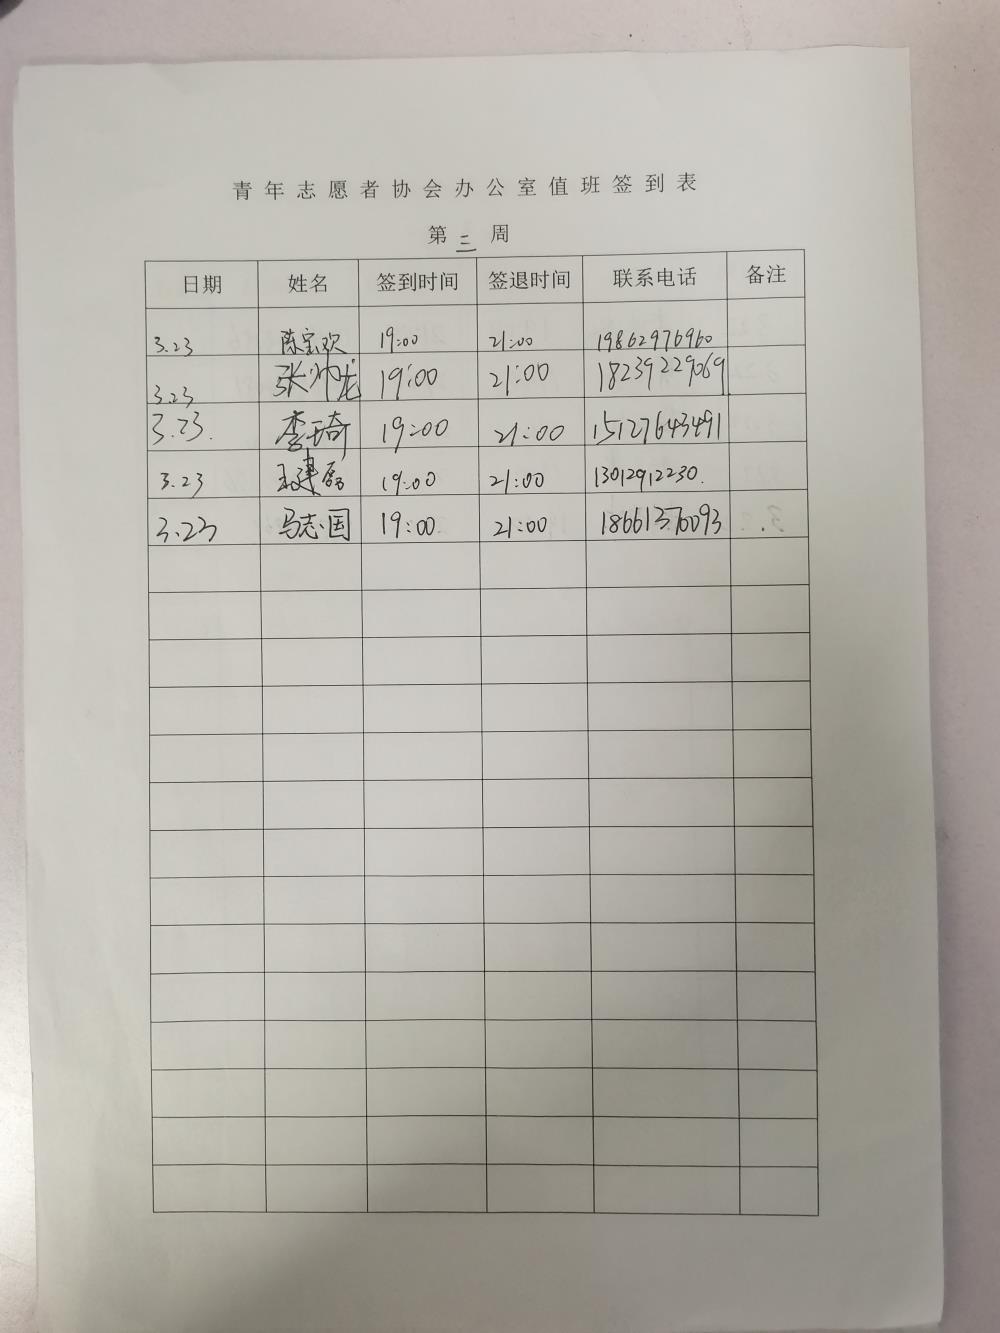 青年志愿者协会办公室值班签到表
第三周
日期 姓名 签到时间 签退时间 联系电话 备注
3.23 陈宝欢 19:00 21:00 19862976960
3.23 张帅龙 19:00 21:00 18239229069
3.23. 李琦 19:00 21:00 15127643491
3.23 王建磊 19:00 21:00 13012912230.
3.23 马志国 19:00 21:00 18661370093